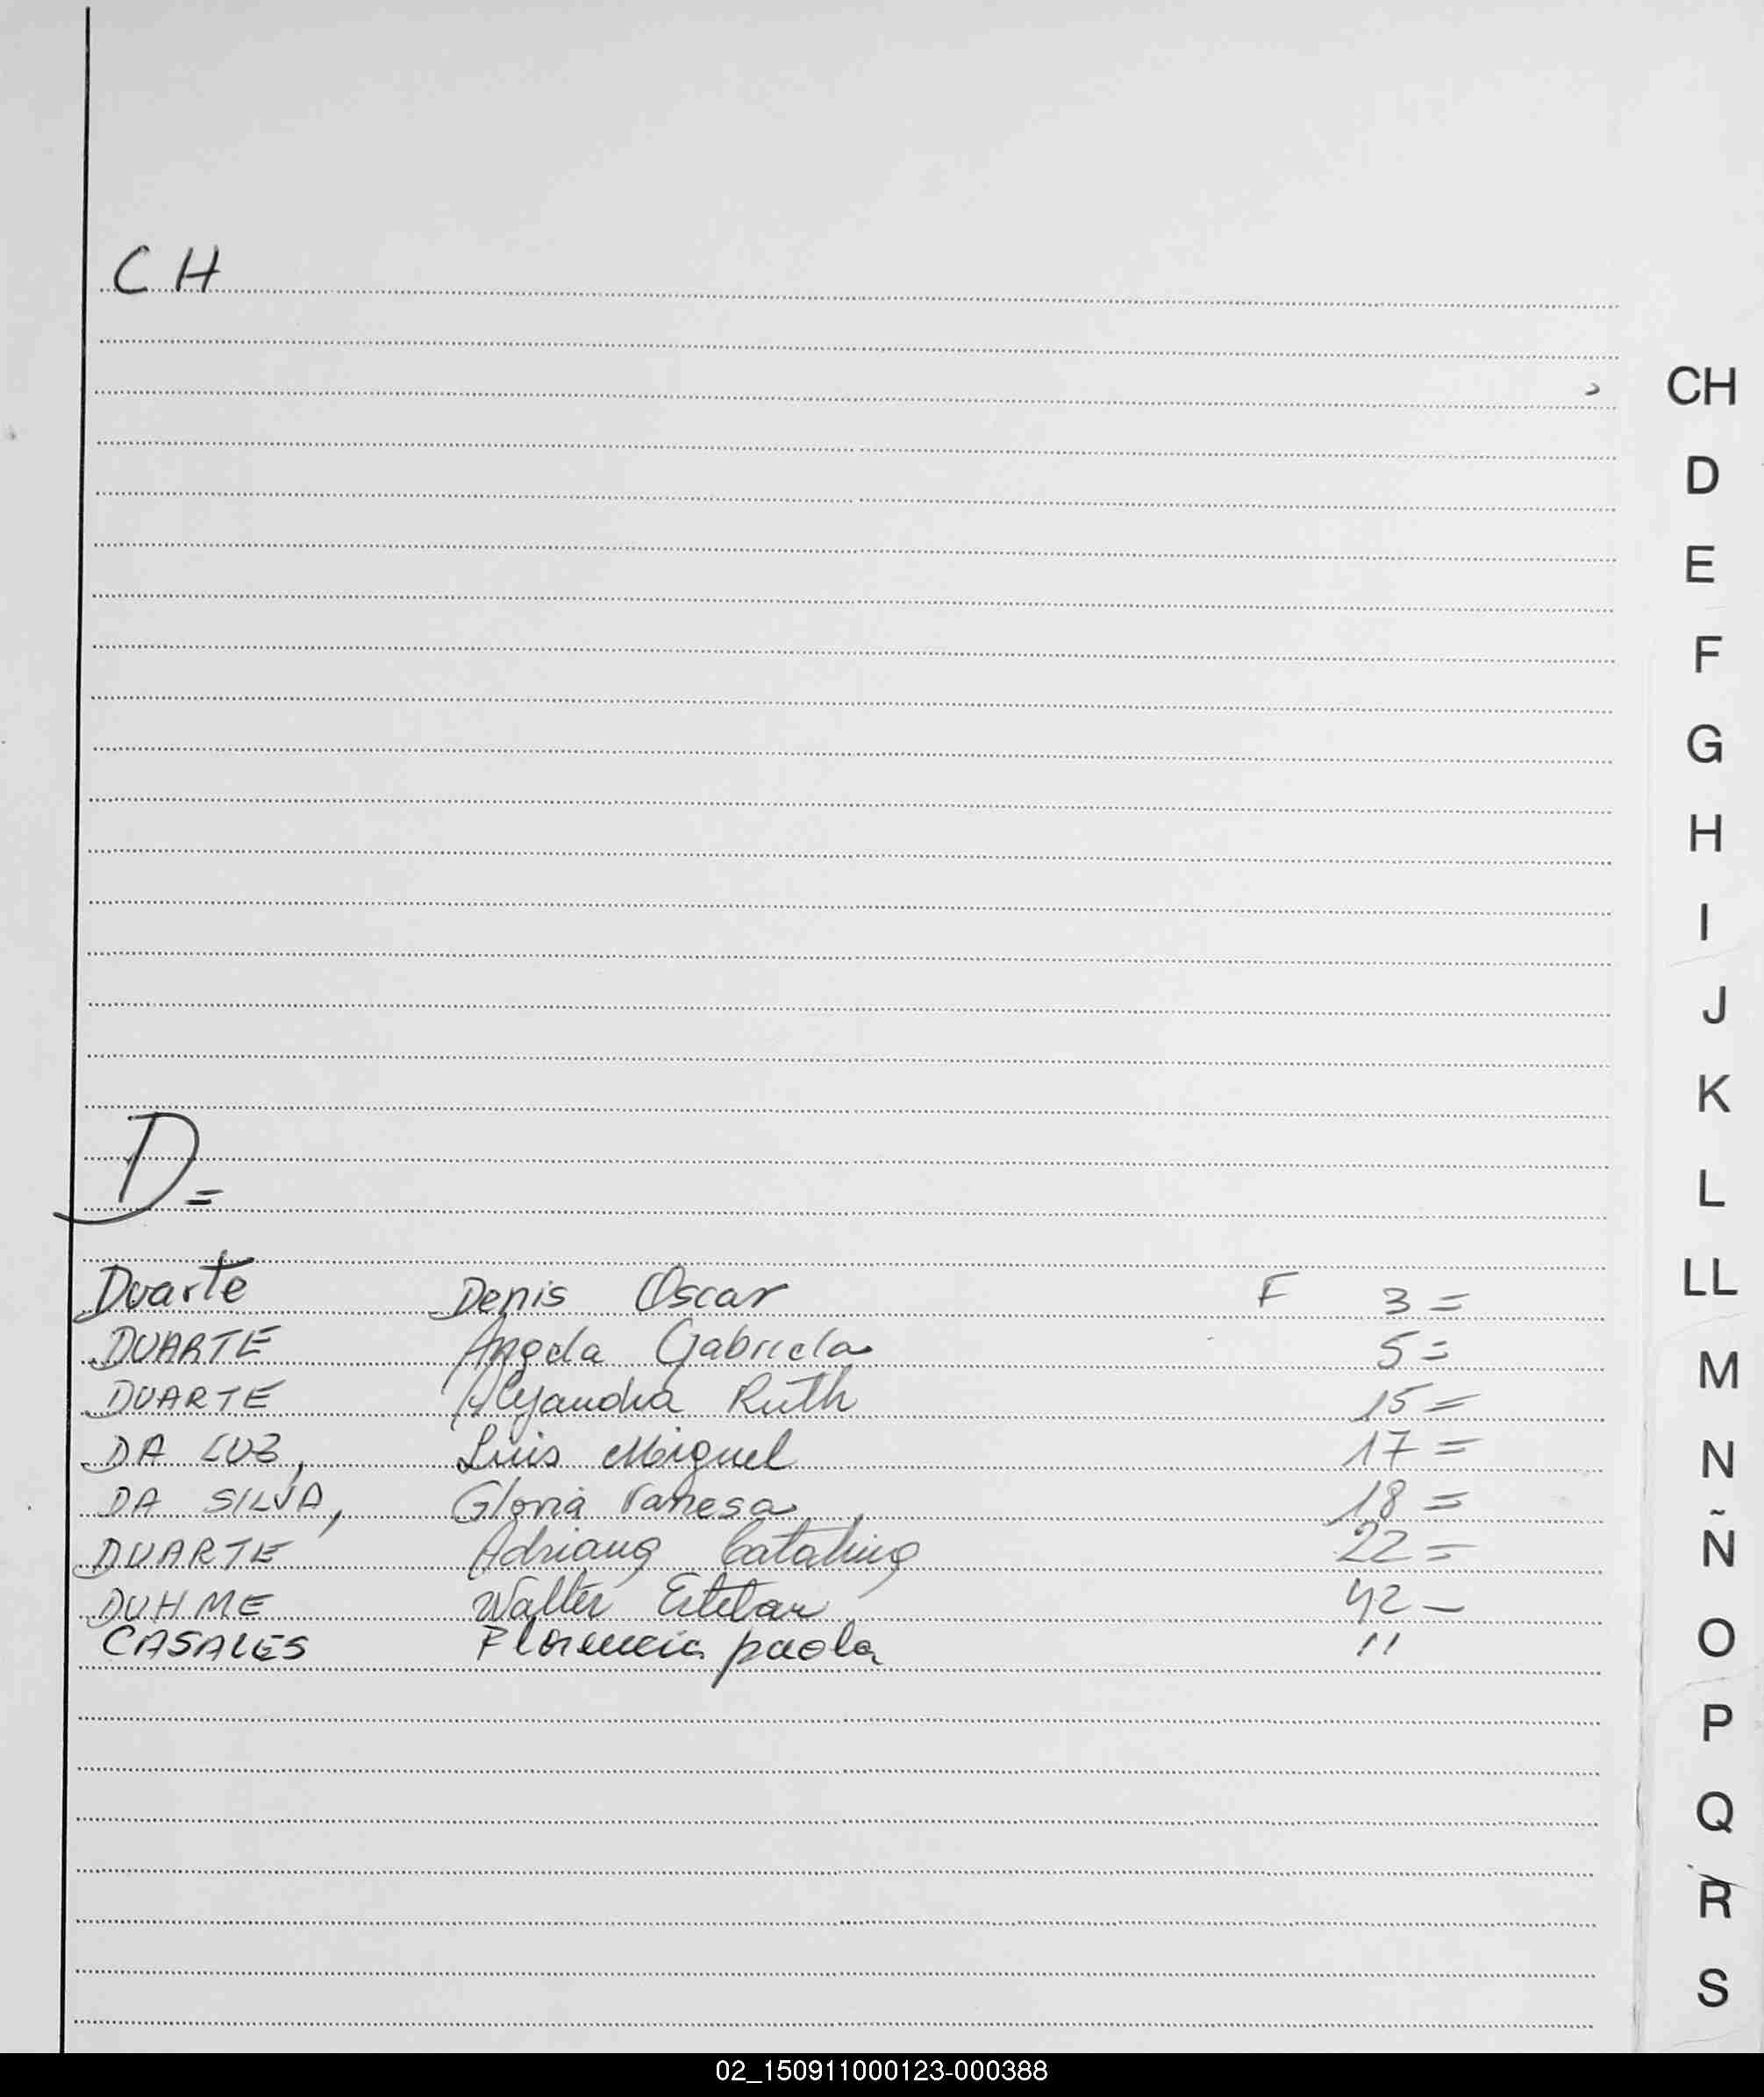 CH
CH
D
E
F
G
H
I
J
K
L
LL
M
N
Ñ
O
P
Q
R
S
D=
Duarte Denis Oscar F 3=
DUARTE Angela Gabriela 5=
DUARTE Alejandra Ruth 15=
DA LUZ, Luis Miguel 17=
DA SILVA, Gloria Vanesa 18=
DUARTE Adriana Catalina 22=
DUHME Walter Esteban 42-
CASALES Florencia paola 11
02_150911000123-000388